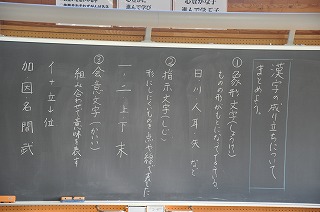 漢字の成り立ちについて
まとめよう。
①象形文字(しょうけい)
ものの形がもとになってできている。
日川人耳矢など
②指示文字(しじ)
形にしにくいものを点や線で表した
一・二上下末
③会意文字(かいい)
組み合わせて意味を表す
イ+立→位
加因名間武